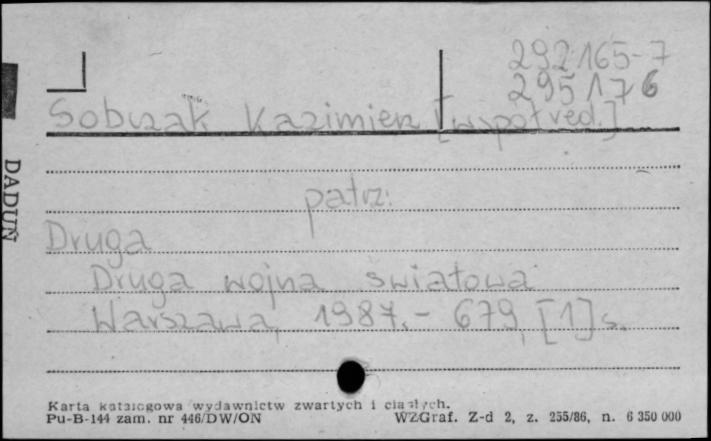 292165-7
295176
Sobczak Kazimierz [współred.]
patrz:
Druga
Druga wojna światowa
Warszawa, 1987. - 679, [1] s.
Karta katalogowa wydawnictw zwartych i ciągłych.
Pu-B-144 zam. nr 446/DW/ON WZGraf. Z-d 2, z. 255/86, n. 6 350 000
DADUŃ